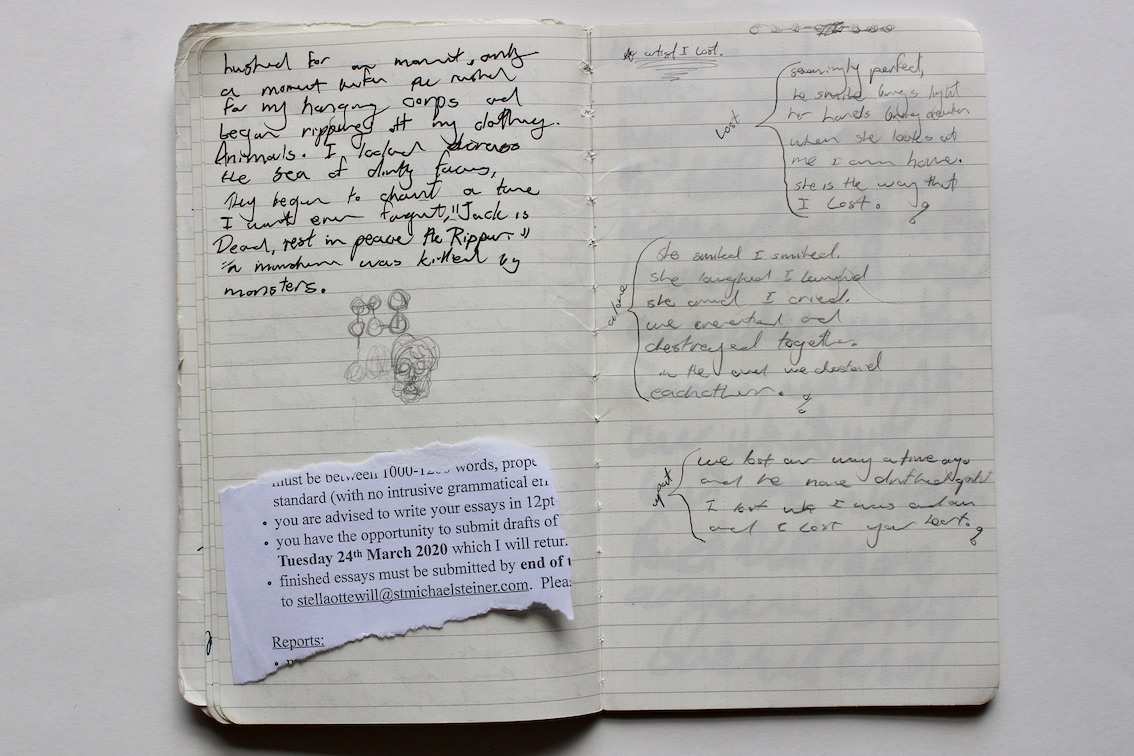 hushed for a moment, only
a moment before he rushed
for my hanging corps and
began ripping off my clothing.
Animals. I looked across
the sea of dirty faces,
They began to chant a tune
I wont ever forget, "Jack is
Dead, rest in peace the Ripper."
"a munshere was killed by
monsters.
must be between 1000-1200 words, prope
standard (with no intrusive grammatical err
• you are advised to write your essays in 12pt
• you have the opportunity to submit drafts of
Tuesday 24th March 2020 which I will retur
• finished essays must be submitted by end of
to stellaottewill@stmichaelsteiner.com. Pleas
Reports:
•
I Lost.
Lost
seemingly perfect,
he smile brings light
her hands bring
when she looks at
me I am home.
she is the way that
I Lost.
alone
she smiled I smiled.
she laughed I laughed
she cried I cried.
we and
destroyed together.
in the end we destroied
eachother.
apart
we lost our way a time ago
and we have drifted
I lost I was
and I lost your heart.